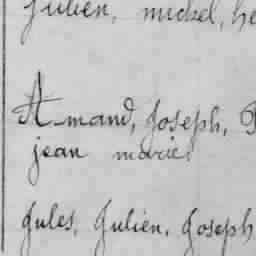 Julien, michel,
Amand, Joseph,
jean marie.
Jules, Julien, Joseph